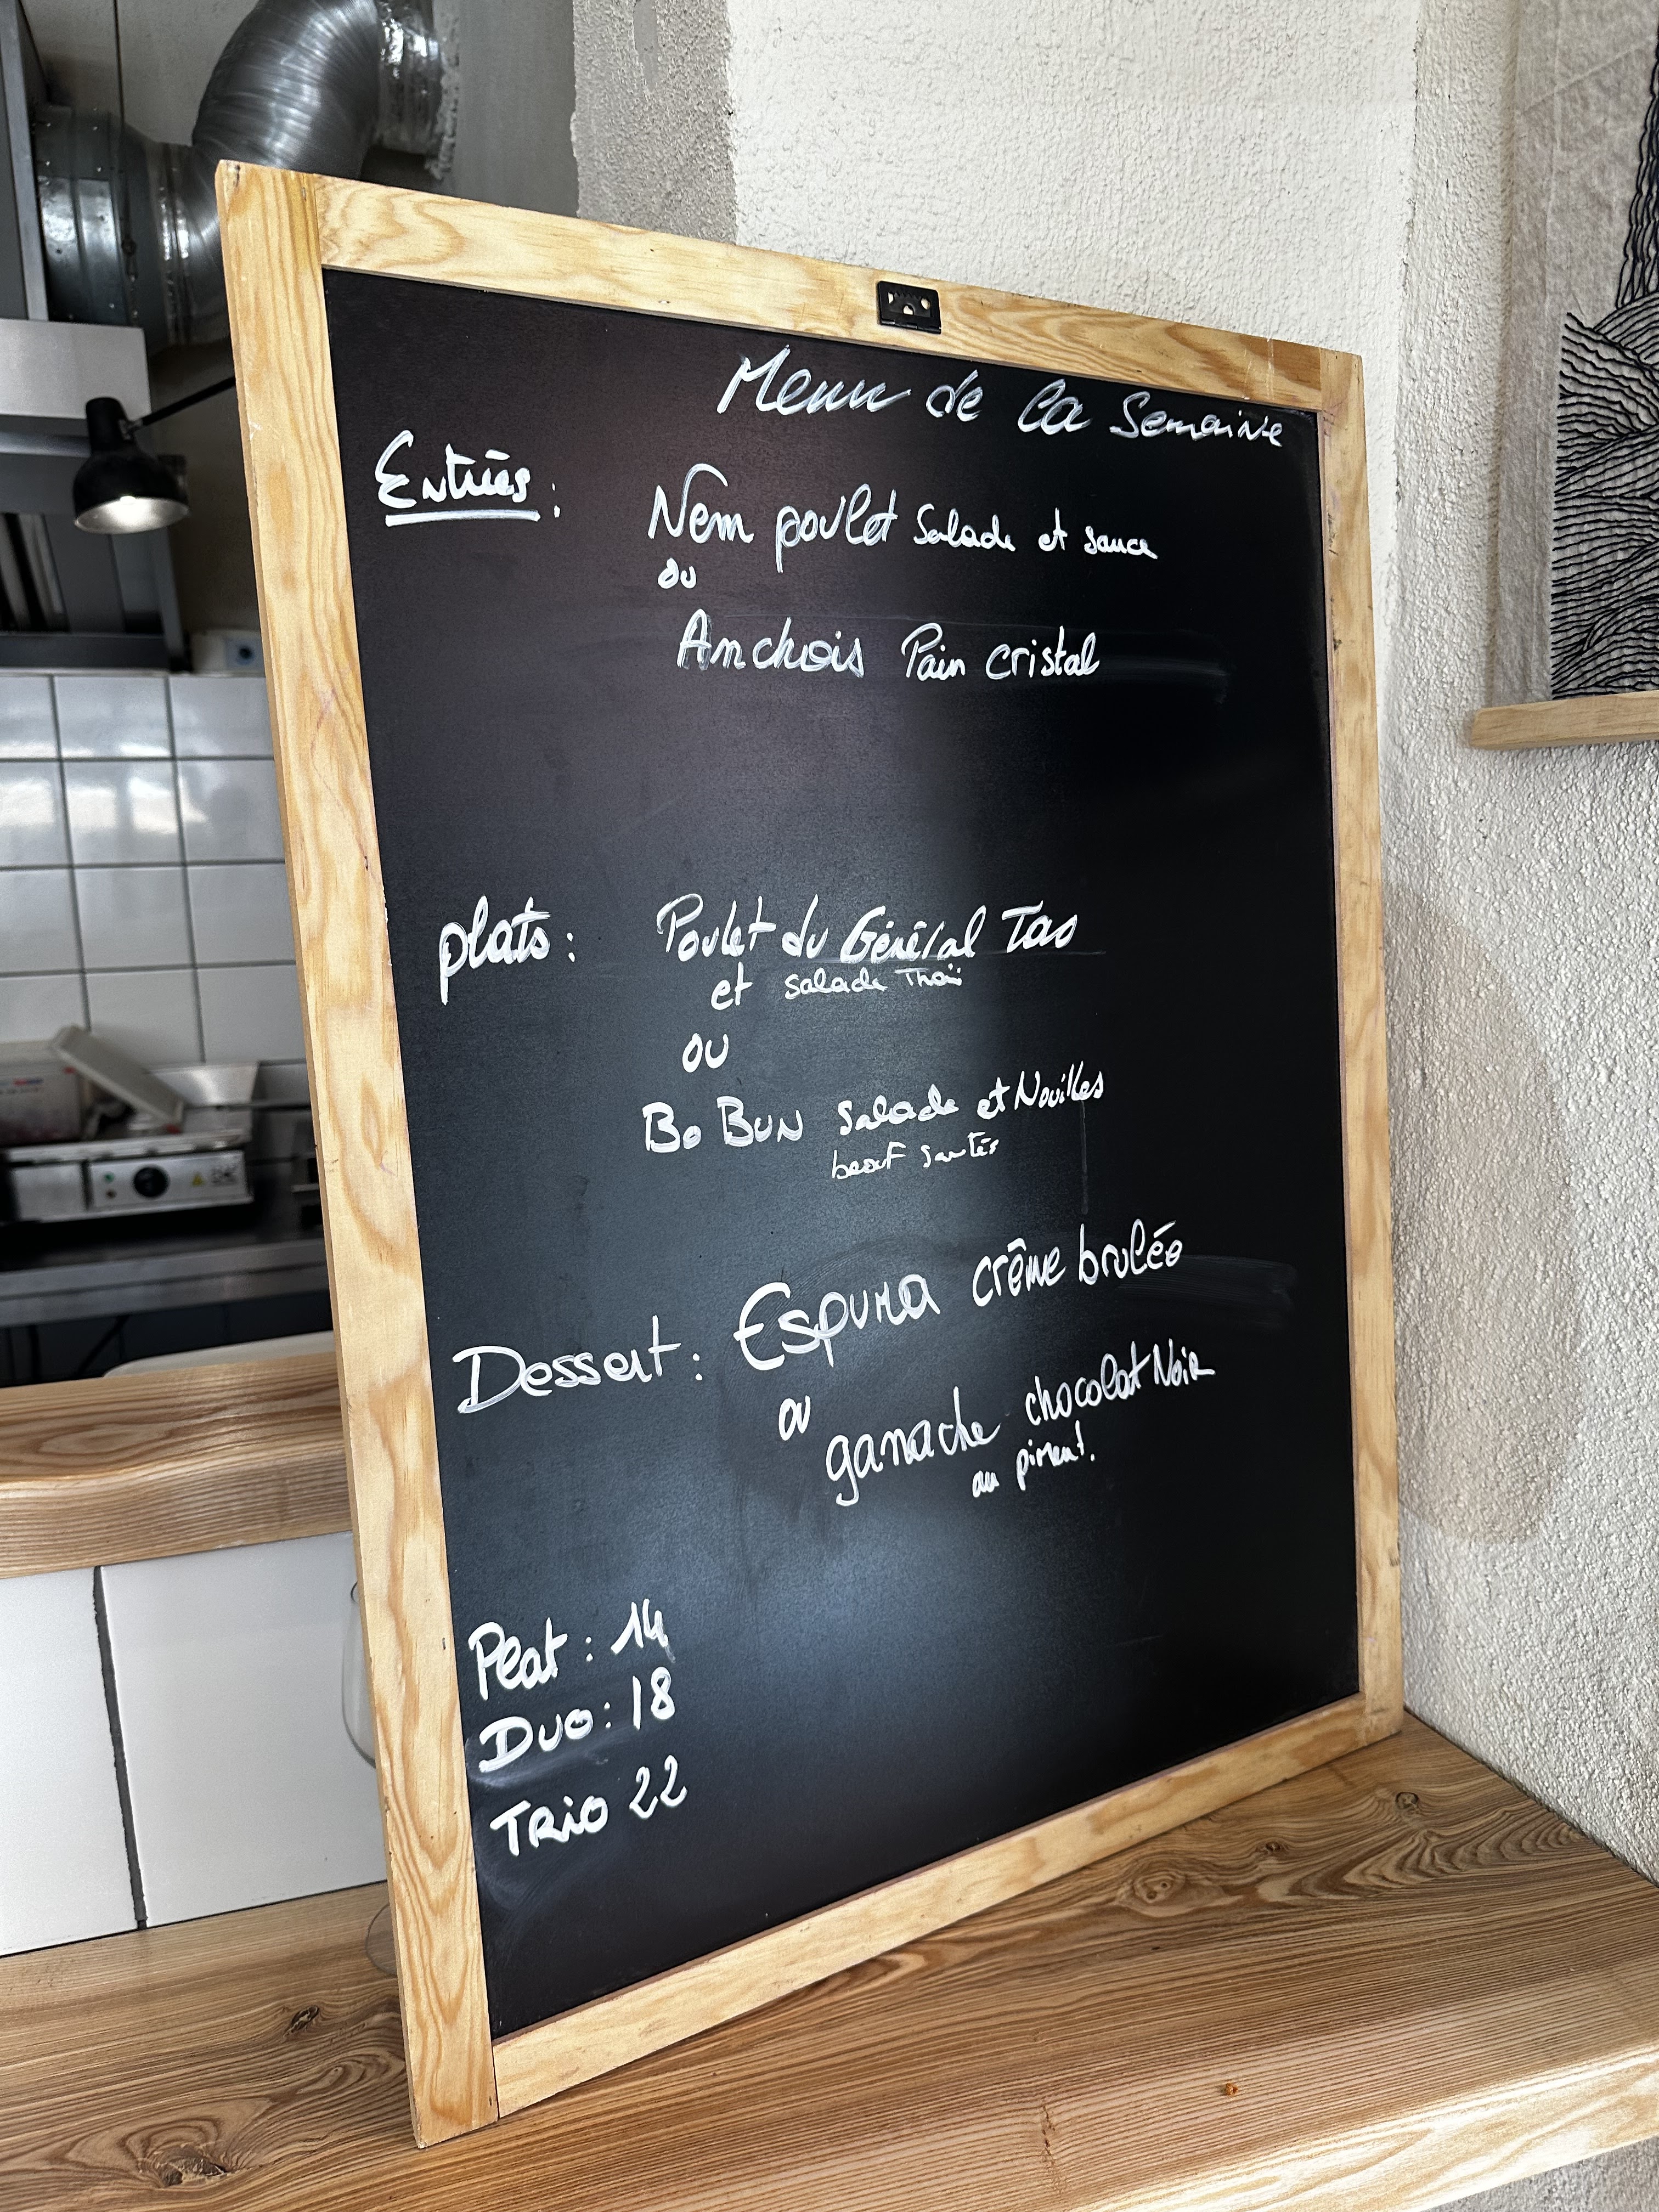 Menu de la Semaine
Entrées : Nem poulet salade et sauce
ou
Anchois Pain cristal
plats : Poulet du Général Tao
et salade Thaï
ou
Bo BUN salade et Nouilles
boeuf sautés
Dessert : Espuma crême brulée
ou
ganache chocolat Noir
au piment.
Plat : 14
DUO : 18
TRIO 22